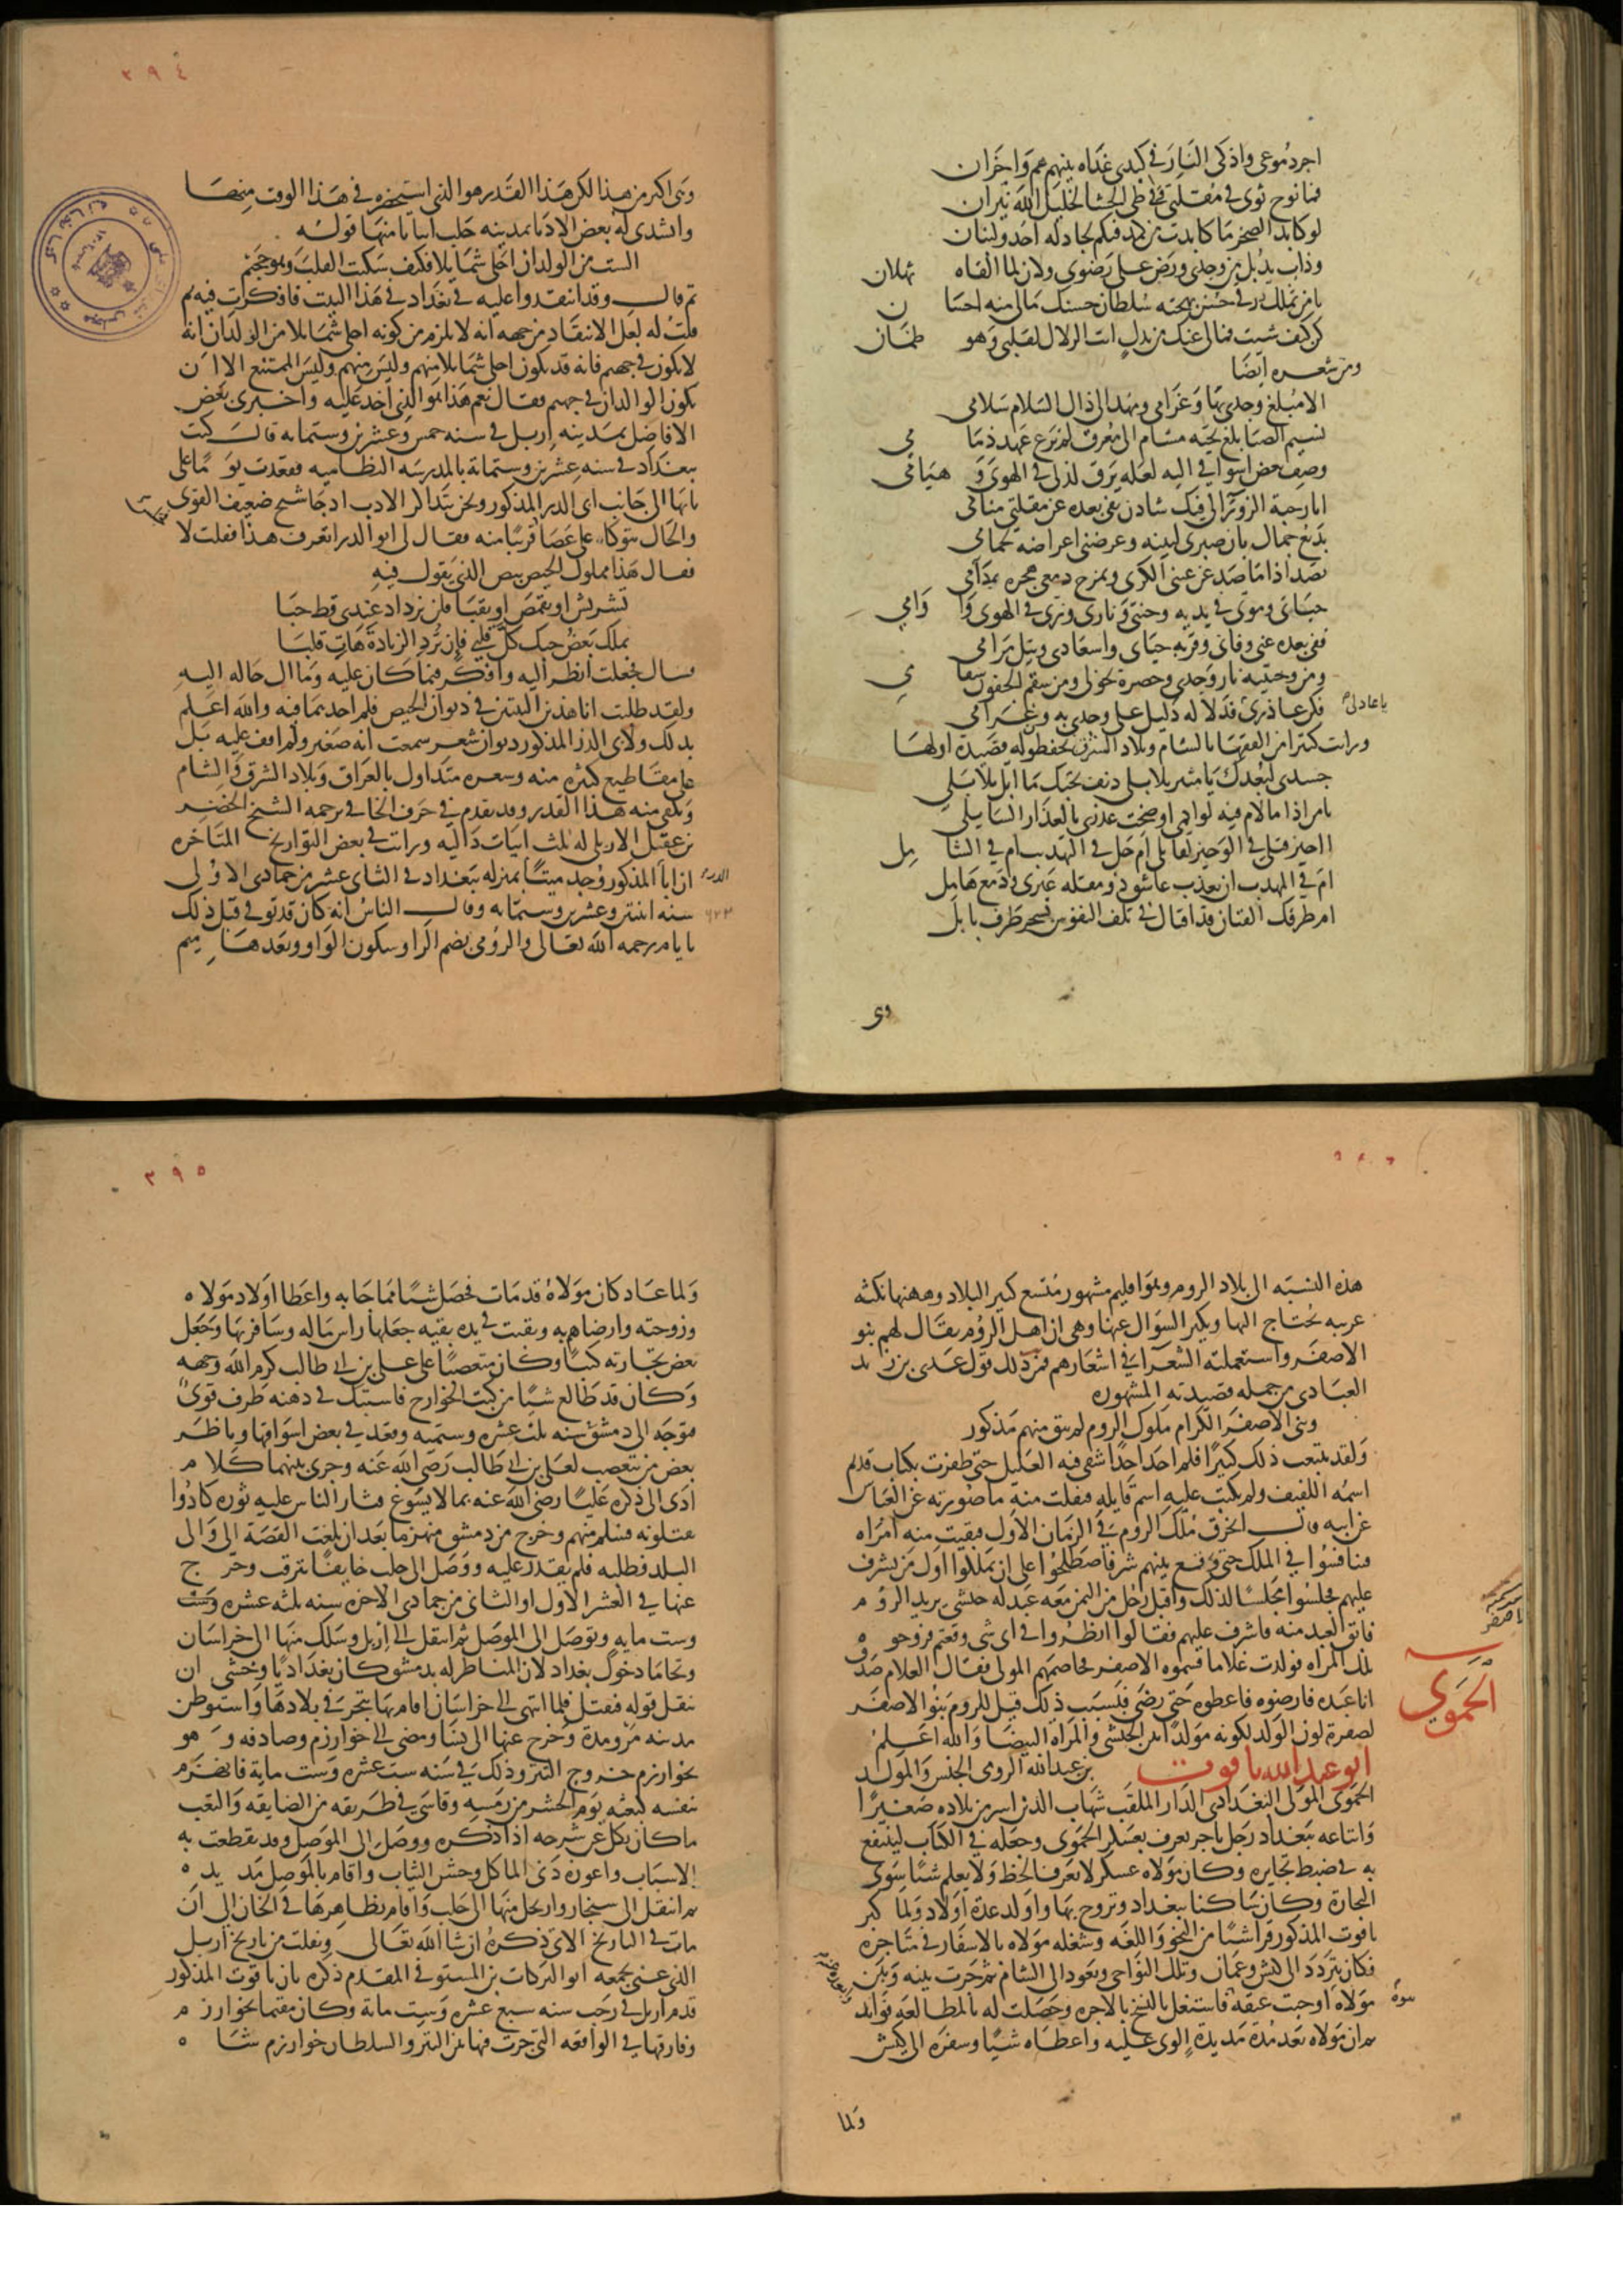 اجرى دموعى واذكى النار فى كبدى غداة بينهم هم واحزان
فما نوح ثوى فى مقلتى فى طى الحشا لخليل الله نيران
لو كابد الصخر ما كابدت من كمد فيكم لجاد له احد ولبنان
وذاب يذبل من وجدى ورض على رضوى ولان لما القاه ثهلان
يا من تملك رقى حسن بهجته سلطان حسنك مالى منه احسان
كن كيف شيت فمالى عنك من بدل انت الزلال لقلبى وهو ظمان
ومن شعره ايضا
الا مبلغ وجدى بها وغرامى ومهد الى ذال السلام سلامى
نسيم الصبا بلغ تحية مشام الى معرق لم يرع عهد ذمامى
وصف بعض اشواقى اليه لعله يرق لذلى فى الهوى وهيامى
ايا رحبة الزوراء لى فيك شادن نفى بعده عن مقلتى منامى
بديع جمال بان صبرى لبينه وعرضنى اعراضه لحمامى
بصد اذا ما صد عن عينى الكرى ويمزج دمعى هجره بمدامى
حياتى وموتى فى يديه وجنتى ونارى وريى فى الهوى واوامى
ففى بعده عنى وفاتى وقربه حياتى واسعادى ونيل مرامى
ومن وجنتيه نار وجدى وخصره نحولى ومن سقم الجفون سقامى
فكن عاذرى قد لا له دليل على وجدى به وغرامى
يا عاذلى
ورايت كثيرا من الفقهاء بالشام وبلاد الشرق يحفظون له قصيدة اولها
جسدى لبعدك يا مثير بلابلى دنف بحبك ما ابل بلا بلى
يا من اذا ما لام فيه لوايمى اوضحت عذرى بالعذار السايل
ااجيز قتلى فى الوجيز لقاتلى ام حل فى التهذيب ام فى الشامل
ام فى المهذب ان يعذب عاشق ذو مقلة عبرى ودمع هامل
ام طرفك الفتان قد افتاك فى تلف النفوس بسحر طرف بابلى
وهى
٣٩٤
وهى اكثر من هذا لكن هذا القدر هو الذى استحضره فى هذا الوقت منها
وانشدنى له بعض الادبا بمدينه حلب ابياتا منها قوله
الست من الولدان احلى شمايلا فكيف سكنت القلب وهو جهنم
ثم قال وقد انتقدوا عليه فى بغداد فى هذا البيت فافكرت فيه ثم
قلت له لعل الانتقاد من جهه انه لا يلزم من كونه احلى شمايلا من الولدان انه
لا يكون فى جهنم فانه قد يكون احلى شمايلا منهم وليس منهم وليس الممتنع الا ان
يكون الولدان فى جهنم فقال نعم هذا هو الذى اخذ عليه واخبرنى بعض
الافاضل بمدينه اربل فى سنه خمس وعشرين وستمايه قال كنت
ببغداد فى سنه عشرين وستماية بالمدرسه النظاميه فقعدت يوما على
بابها الى جانب ابى الدر المذكور ونحن نتذاكر الادب اذ جا شيخ ضعيف القوى
والحال يتوكا على عصا قريبا منه فقال لى ابو الدر اتعرف هذا فقلت لا
فقال هذا مملوك الحيص بيص الذى يقول فيه
تشربش او تقمص او تقبا فلن تزداد عندى قط حبا
تملك بعض حبك كل قلبى فان ترد الزيادة هات قلبا
قال فجعلت انظر اليه وافكر فيما كان عليه وما ال حاله اليه
ولقد طلبت انا هذين البيتين فى ديوان الحيص فلم اجدهما فيه والله اعلم
بذلك ولابى الدر المذكور ديوان شعر سمعت انه صغير ولم اقف عليه بل
على مقاطيع كثيره منه وشعره متداول بالعراق وبلاد الشرق والشام
ويكفى منه هذا القدر وقد تقدم فى حرف الخا فى ترجمه الشيخ الخضر
بن عقيل الاربلى له ثلث ابيات داليه ورايت فى بعض التواريخ المتاخره
ان ابا المذكور وجد ميتا بمنزله ببغداد فى الثانى عشر من جمادى الاولى
الدر
سنه اثنتين وعشرين وستمايه وقال الناس انه كان قد توفى قبل ذلك
٦٢٢
بايام رحمه الله تعالى والرومى بضم الرا وسكون الواو وبعدها ميم
هذه النسبه الى بلاد الروم وهو اقليم مشهور متسع كبير البلاد وههنا نكته
غريبه يحتاج اليها ويكثر السوال عنها وهى ان اهل الروم يقال لهم بنو
الاصفر واستعملته الشعرا فى اشعارهم فمن ذلك قول عدى بن زيد
العبادى من جمله قصيدته المشهوره
وبنى الاصفر الكرام ملوك الروم لم يبق منهم مذكور
ولقد تتبعت ذلك كثيرا فلم اجد احدا شفى فيه العليل حتى ظفرت بكتاب قديم
اسمه اللفيف ولم يكتب عليه اسم قايله فنقلت منه ما صورته عن العباس
عن ابيه قال انخرق ملك الروم فى الزمان الاول فبقيت منه امراه
فتنافسوا فى الملك حتى وقع بينهم شر فاصطلحوا على ان يملكوا اول من يشرف
عليهم فجلسوا مجلسا لذلك واقبل رجل من اليمن معه عبد له حبشى يريد الروم
فابق العبد منه فاشرف عليهم فقالوا انظروا فى اى شى وقعتم فزوجوه
تلك المراه فولدت غلاما فسموه الاصفر فخاصمهم المولى فقال الغلام صدق
انا عبده فارضوه فاعطوه حتى رضى فبسبب ذلك قيل للروم بنو الاصفر
لصفرة لون الولد لكونه مولدا بين الحبشى والمراه البيضا والله اعلم
الحموى
ابو عبد الله ياقوت بن عبد الله الرومى الجنس والمولد
الحموى المولى البغدادى الدار الملقب شهاب الدين اسر من بلاده صغيرا
وابتاعه ببغداد رجل تاجر يعرف بعسكر الحموى وجعله فى الكتاب لينتفع
به فى ضبط تجايره وكان مولاه عسكر لا يعرف الخط ولا يعلم شيا سوى
التجارة وكان ساكنا ببغداد وتزوج بها واولد عدة اولاد ولما كبر
ياقوت المذكور قرا شيا من النحو واللغه وشغله مولاه بالاسفار فى متاجره
فكان يتردد الى كيش وعمان وتلك النواحى ويعود الى الشام ثم جرت بينه وبين
مولاه نبوة اوجبت عتقه فاشتغل بالنسخ بالاجره وحصلت له بالمطالعه فوايد
ثم ان مولاه بعد مدة مديدة الوى عليه واعطاه شيا وسفره الى كيش
ولما
٣٩٥
ولما عاد كان مولاه قد مات فحصل شيا مما جا به واعطا اولاد مولاه
وزوجته وارضاهم به وبقيت فى يده بقيه جعلها راس ماله وسافر بها وجعل
بعض تجارته كتبا وكان متعصبا على على بن ابى طالب كرم الله وجهه
وكان قد طالع شيا من كتب الخوارج فاشتبك فى ذهنه طرف قوى
فتوجه الى دمشق سنه ثلث عشره وستميه وقعد فى بعض اسواقها وناظر
بعض من يتعصب لعلى بن ابى طالب رضى الله عنه وجرى بينهما كلام
ادى الى ذكره عليا رضى الله عنه بما لا يسوغ فثار الناس عليه ثوره كادوا
يقتلونه فسلم منهم وخرج من دمشق منهزما بعد ان بلغت القصة الى والى
البلد فطلبه فلم يقدر عليه ووصل الى حلب خايفا يترقب وخرج
عنها فى العشر الاول او الثانى من جمادى الاخره سنه ثلثه عشره وست
وست مايه وتوصل الى الموصل ثم انتقل الى اربل وسلك منها الى خراسان
وتحاما دخول بغداد لان المناظر له بدمشق كان بغداديا وخشى ان
ينقل قوله فيقتل فلما انتهى الى خراسان اقام بها يتجر فى بلادها واستوطن
مدينه مرو مدة وخرج عنها الى نسا ومضى الى خوارزم وصادفه وهو
بخوارزم خروج التتر وذلك فى سنه ست عشره وست ماية فانهزم
بنفسه كبعثه يوم الحشر من رمسه وقاسى فى طريقه من الضايقه والتعب
ما كان يكل عن شرحه اذا ذكره ووصل الى الموصل وقد تقطعت به
الاسباب واعوزه دنى الماكل وخشن الثياب واقام بالموصل مديده
ثم انتقل الى سنجار وارتحل منها الى حلب واقام بظاهرها فى الخان الى ان
مات فى التاريخ الاتى ذكره ان شا الله تعالى ونقلت من تاريخ اربل
الذى عنى بجمعه ابو البركات بن المستوفى المقدم ذكره بان ياقوت المذكور
قدم اربل فى رجب سنه سبع عشره وست ماية وكان مقيما بخوارزم
وفارقها فى الواقعه التى جرت فيها بين التتر والسلطان خوارزم شاه